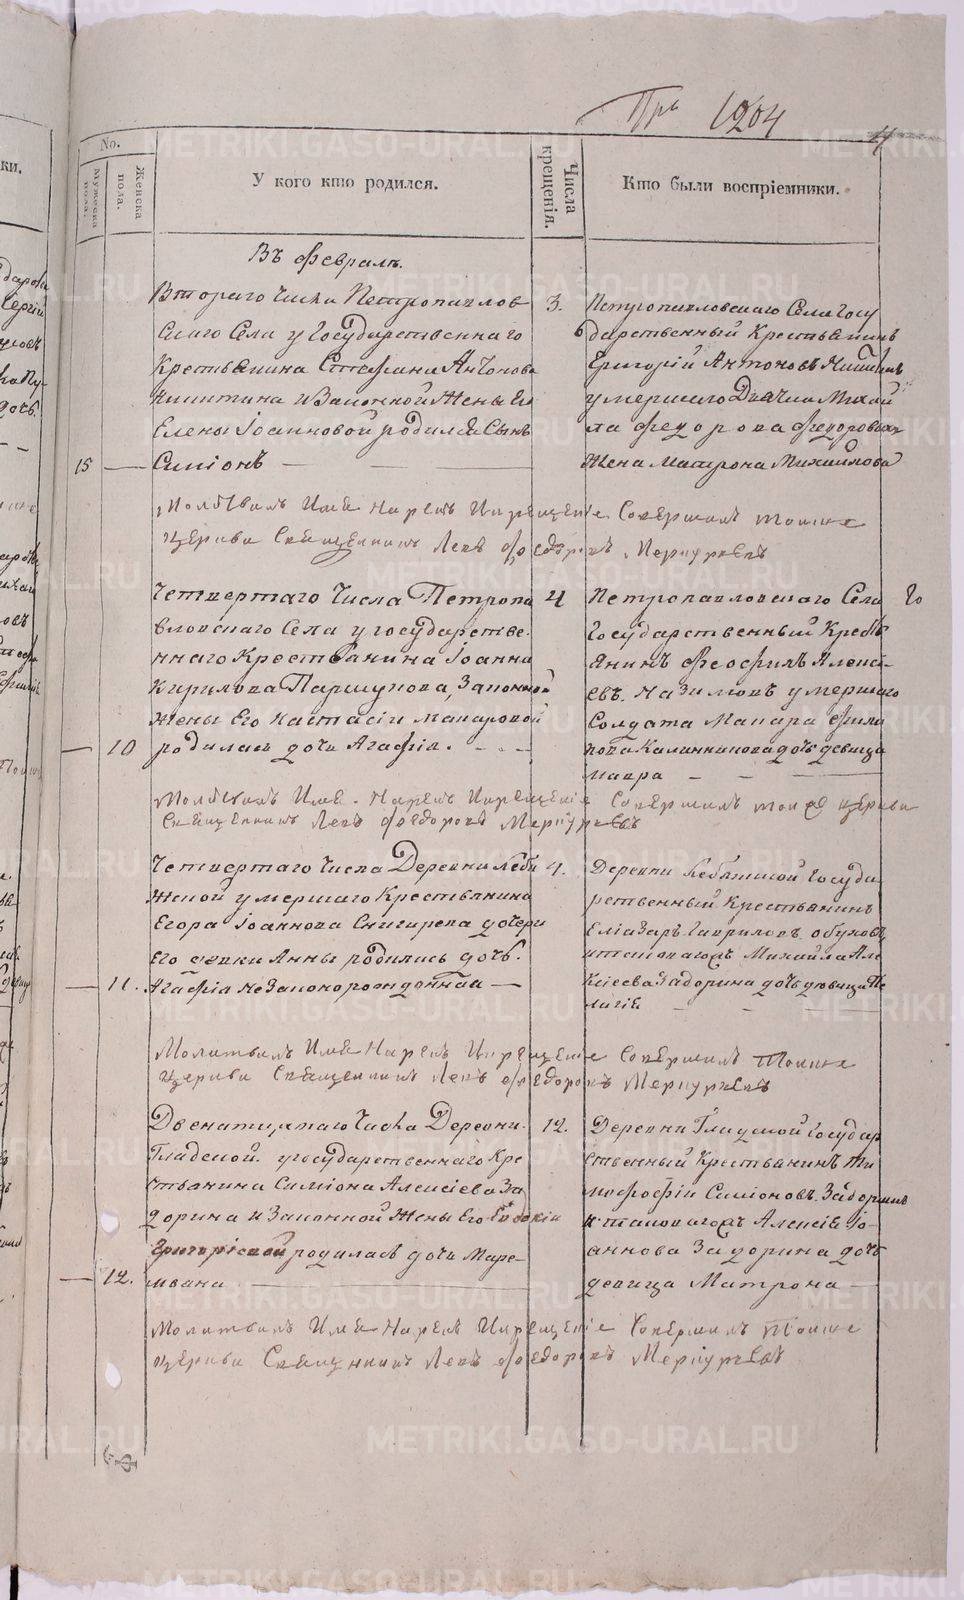 Прв 1204
4
No.
Мужеска пола.
Женска пола.
У кого кто родился.
Числа крещенія.
Кто были воспріемники.
Въ Февралѣ.
Втораго Числа Петропавлов
скаго Села у Государственнаго
Крестьянина Стефана Антонова
Никитина и Законной Жены Его
Елены Іоанновой родился Сынъ
15 Симіонъ
3.
Петропавловскаго Села Госу
дарственный Крестьянинъ
Григорій Антоновъ Никитинъ
умершаго Дьячка Михай
ла Федорова
Жена Матрона Михайлова
Молитвилъ Имя Нарекъ И крещеніе Совершилъ тоиже
церкви Священникъ Левъ Феодоровъ Меркурьевъ
Четвертаго Числа Петропа
вловскаго Села у государстве-
ннаго Крестьянина Іоанна
Кирилова Паршукова, Законной
Жены Его Настасіи Макаровой
10 родилась дочь Агафія.
4
Петропавловскаго Села Го
Государственный Кресть
янинъ Феофилъ Алексѣ-
евъ. Назимовъ умершаго
Солдата Макара Фили
пова Калинникова дочь девица
Мавра
Молитвилъ Имя. Нарекъ И крещеніе Совершилъ тои же церкви
Священникъ Левъ Феодоровъ Меркурьевъ
Четвертаго Числа Деревни Леба
жской умершаго Крестьянина
Егора Іоаннова Снигирева дочери
его девки Анны родилась дочь.
11. Агафія незаконорожденная
4.
Деревни Лебажской Госуда
рственный Крестьянинъ
Еліазаръ Гавриловъ. Обуховъ,
и таковагожъ Михайла Але
ксіева Задорина дочь девица Пе
лагія
Молитвилъ Имя Нарекъ И крещеніе Совершилъ Тоиже
церкви Священникъ Левъ Феодоровъ Меркурьевъ
Двенатцатаго Числа Деревни.
Гладской. у государственнаго Кре
стьянина Симіона Алексіева За
дорина и Законной Жены Его Евдокіи
Григоріевой родилась дочь Маре-
12. мьяна
12.
Деревни Гладской Государ
ственный Крестьянинъ Ти
мофофій Симіоновъ. Задоринъ
и таковагожъ Алексія Іо-
аннова Задорина дочь
девица Матрона
Молитвилъ Имя Нарекъ И крещеніе Совершилъ Тоиже
церкви Священникъ Левъ Феодоровъ Меркурьевъ
METRIKI.GASO-URAL.RU